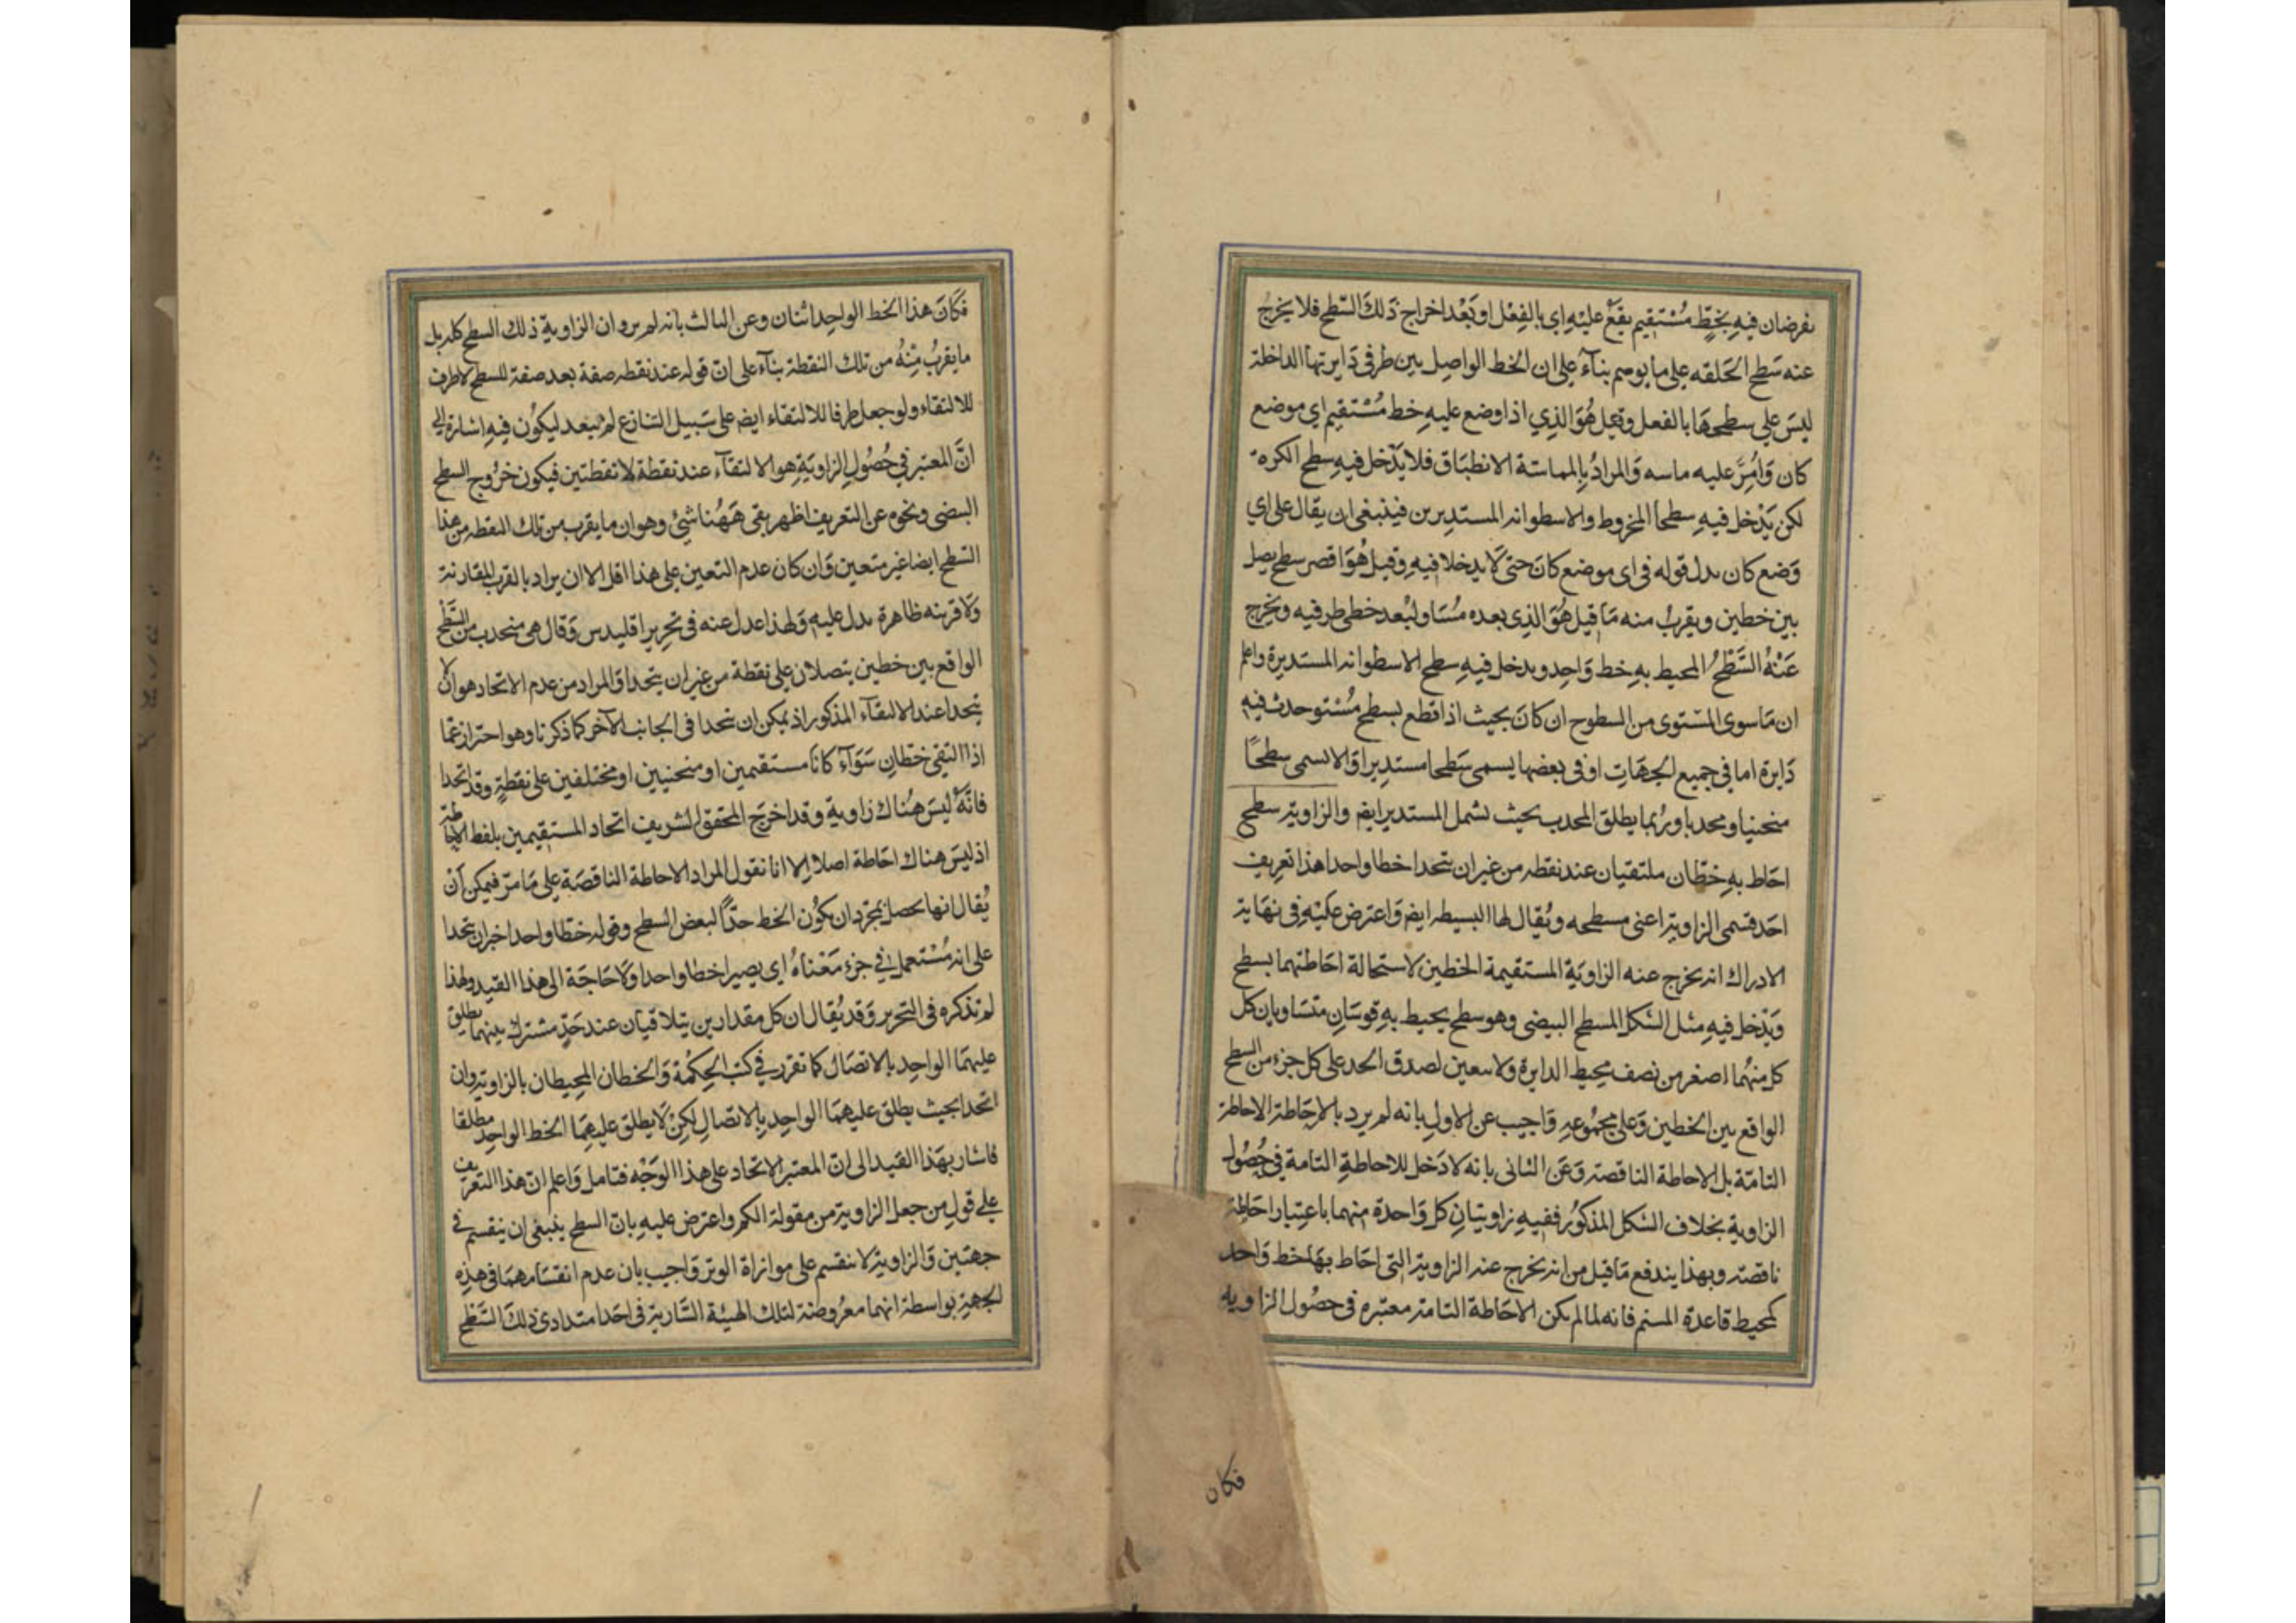 يفرضان فيه بخطٍّ مُسْتقيم يقع عليْهِ اي بالفِعْل او بَعْد اخراج ذَلكَ السّطح فلا يخرجُ
عنه سَطح الحَلقه على ما يوهم بناءً على ان الخط الواصِل بين طرفى دَايرتها الداخلة
ليسَ على سطحهَا بالفعل وقيل هُوَ الذِي اذا وضع عليهِ خط مُسْتقيم اي موضع
كان وَاُمِرَّ عليه ماسه وَالمرادُ بالمماسّة الانطبَاق فلا يدّخل فيهِ سطح الكره
لكن يَدْخل فيهِ سطحا المخروط والاسطوانه المستدِيرين فينبغى ان يقال على اي
وَضع كان بدل قوله فى اى موضع كانَ حتى لَا يدخلا فيهِ وقيل هُوَ اقصر سطح يصل
بين خطين ويقربُ منه مَا قيل هُوَ الذى بعده مُسَاو لبُعد خطى طرفيه ويخرج
عَنْهُ السَّطْحُ المحيط بهِ خط وَاحِد ويدخل فيهِ سطح الاسطوانه المستديرة واعلم
ان مَا سوى المسْتوى من السطوح ان كانَ بحيث اذا قطع بسطح مُسْتو حدث فيهِ
دَايرة اما فى جميع الجهَاتِ او فى بعضها يسمى سَطحا مستدِيرا وَالا يسمى سطحًا
منحنيا ومحدبا ورُبما يطلق المحدب بحيث يشمل المستدير ايضا والزاوية سطح
احَاط بهِ خطّان ملتقيان عند نقطه من غير ان يتحدا خطا واحدا هذا تعريف
احَد قسمى الزاوية اعنى مسطحه ويُقال لها البسيطه ايضا وَاعترض عَليْهِ فى نهَاية
الادراك انه يخرج عنه الزاويَة المستقيمة الخطين لاستحالة احَاطتهما بسطح
وَيَدْخل فيهِ مثل الشكل المسطح البيضى وهو سطح يحيط بهِ قوسَانِ متسَاويان كل
كل منهُما اصغر من نصف محِيط الدايرة ولا يتعين لصدق الحد على كل جزء من السطح
الواقع بين الخطين وَعلى مجمُوعهِ وَاجيب عن الاولِ بانه لم يرد بالاحَاطة الاحاطة
التامّة بل الاحاطة الناقصة وَعَن الثانى بانه لا دَخل للاحاطةِ التامة فى حُصُول
الزاوية بخلاف الشكل المذكوُر ففيهِ زاويتانِ كل وَاحدة منهما باعتِبار احَاطة
ناقصة وبهذا يندفع مَا قيل من انه يخرج عنه الزاوية التى احَاط بهَا خط وَاحد
كمحيط قاعدة المسنم فانه لما لم يكن الاحَاطة التامة معتبره فى حصُول الزاويه
فكان
فَكانَ هذا الخط الواحِد اثنان وعن الثالث بانه لم يرو ان الزاوية ذلك السطح كله بل
ما يقربُ مِنْهُ من تلك النقطة بنآء على انّ قوله عند نقطه صفة بعد صفة للسطح لا ظرف
للالتقاء ولو جعل ظرفا للالتقاء ايضا على سَبيل التنازع لم يبعد ليكوُن فيهِ اشارة الى
انَّ المعتبر فى حُصُولِ الزاويَةِ هو الالتقآء عند نقطة لا نقطتين فيكون خرُوج السطح
البيضى ونحوه عن التعريف اظهر بقى هَهُنا شئ وهو ان ما يقرب من تلك النقطه من هذا
السَّطح ايضا غير متعين وَان كان عدم التعين على هذا اقل الا ان يراد بالقرب المقارنة
وَلا قرينه ظاهرة يدل عليهِ وَلهذا عدل عنه فى تحرير اقليدس وَقال هى منحدب من السَّطْح
الواقع بين خطين يتصلان على نقطة من غير ان يتحدا وَالمراد من عدم الاتحاد هو ان لا
يتحدا عند الالتقآء المذكور اذ يمكن ان يتحدا فى الجانب الآخر كما ذكرنا وهو احتراز عمّا
اذا التقى خطانِ سَوَآء كانَا مستقيمين او منحنيين او مختلفين على نقطةٍ وقد اتحدا
فانّهُ ليسَ هُناك زاوية وقد اخرَج المحقق الشريف اتحاد المستقيمين بلفظ الاحاطة
اذ ليسَ هناك احَاطة اصلا الا انا نقول المراد الاحاطة الناقصَة على مَا مرّ فيمكن اَنْ
يُقال انها تحصل بمجرّد ان يكوُن الخط حدًّا لبعض السطح وقوله خطّا واحدا خبر ان يتحدا
على انه مُسْتعمل فى جزءِ مَعْناهُ اى يصيرا خطا واحدا وَلا حَاجَة الى هذا القيد ولهذا
لم نذكره فى التحرير وَقد يُقال ان كل مقدارين يتلاقيَان عند حَدٍّ مشترك بينهما يطلق
عليهمَا الواحِد بالاتصَال كما تقرر فى كتب الحِكمْة وَالخطان المحِيطان بالزاوية وان
اتحدا بحيث يطلق عليهمَا الواحِد بالاتصَالِ لكِنْ لَا يطلق عليهِمَا الخط الواحِد مطلقا
فاشار بهَذا القيد الى انّ المعتبر الاتحاد على هذا الوَجْه فتامل وَاعلم انّ هذا التعريف
على قولِ من جعل الزاوية من مقولة الكم واعترض عليهِ بانّ السطح ينبغى ان ينقسم فى
جهتين وَالزاوية لا ينقسم على موازاة الوتر وَاجيب بان عدم انقسَامهمَا فى هذِه
الجهةِ بواسطة انهما معرُوضة لتلك الهيئة السَّارية فى احَد امتدادى ذلكَ السَّطْح